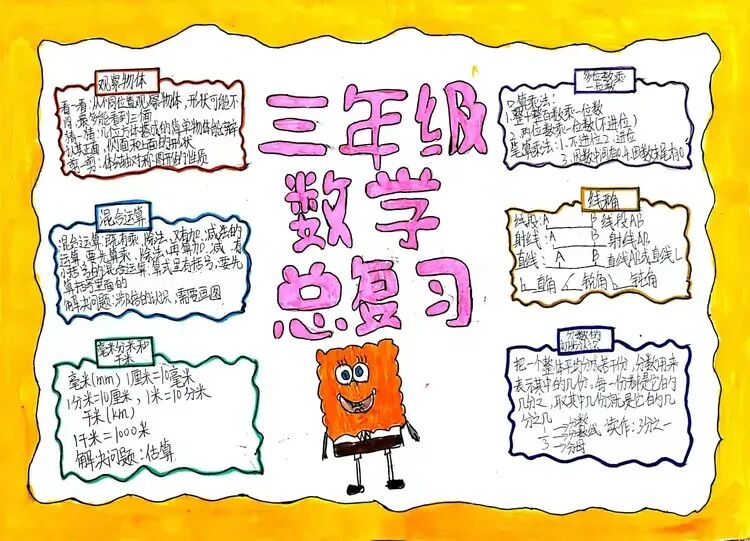 三年级
数学
总复习
观察物体
看一看:从不同位置观察物体,形状可能不
同,最多能看到三面
猜一猜:几位方体搭成的简单物体能辨
认其正面、侧面和上面的形状
剪一剪:体会轴对称图形的性质
混合运算
混合运算:既有乘、除法,又有加、减法的
运算,要先算乘、除法,再算加、减,有
小括号的混合运算,算式里有括号,要先
算括号里面的
解决问题:涉及倍的认识,需要画图
毫米分米和
千米
毫米(mm) 1厘米=10毫米
1分米=10厘米,1米=10分米
千米(km)
1千米=1000米
解决问题:估算
多位数乘
一位数
口算乘法:
整十整百数乘一位数
2.两位数乘一位数(不进位)
笔算乘法:1.不进位2.进位
3.因数中间有0 4.因数末尾有0
线和角
线段:A B 线段AB
射线:A B 射线AB
直线: A B 直线AB或直线L
直角 锐角 钝角
分数的
初步认识
把一个整体平均分成若干份,分数用来
表示其中的几份。每一份都是它的
几分之一,取其中几份就是它的几
分之几
1一分子
一分数线 读作:3分之一
3一分母